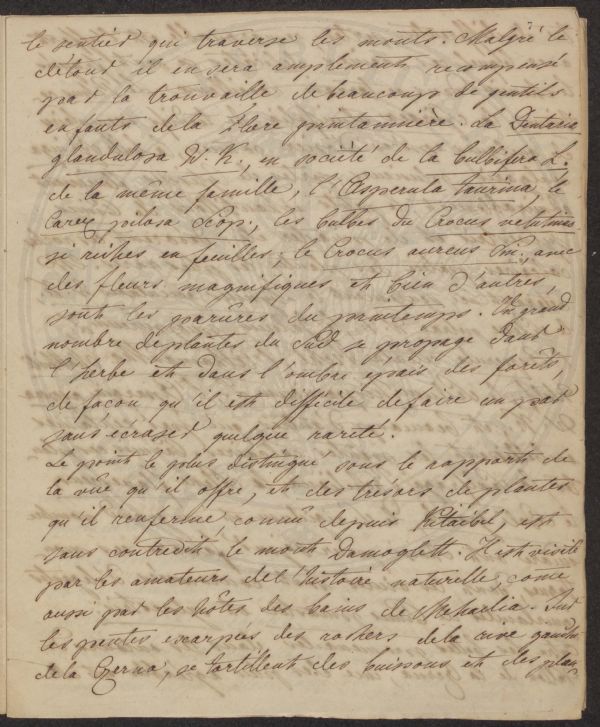 7
le sentier qui traverse les monts. Malgré le
detour il en sera amplement recompensé
par la trouvaille de beaucoup de gentils
enfants de la Flore printannière. La Dentaria
glandulosa W. K., en société de la bulbifera L.
de la même famille, l'Asperula taurina, le
Carex pilosa Scop., les bulbes du Crocus
si riches en feuilles; le Crocus aureus Sm., avec
des fleurs magnifiques et bien d'autres,
sont les parûres du printemps. Un grand
nombre de plantes du Sud se propage dans
l'herbe et dans l'ombre épais des forêts,
de façon qu'il est difficile de faire un pas
sans écraser quelque rareté.
Le point le plus distingué sous le rapport de
la vûe qu'il offre, et des trésors de plantes
qu'il renferme connû depuis Kitaibel, est
sans contredit le mont Damoglett. Il est visité
par les amateurs de l'histoire naturelle, come
aussi par les hôtes des bains de Mehadia. Sur
les pentes escarpées des rochers de la rive gauche
de la Czerna, se tortillent des buissons et des plan